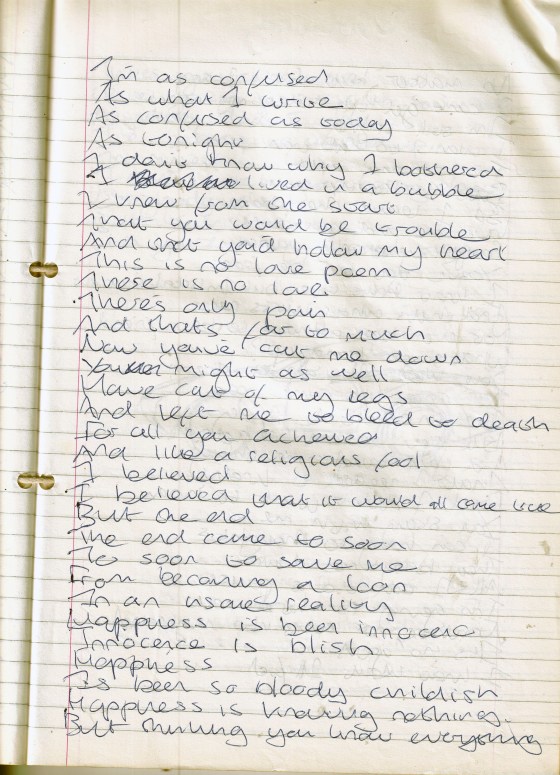 I'm as confused
As what I write
As confused as today
As tonight
I don't know why I bothered
I lived in a bubble
I knew from the start
that you would be trouble
And that you'd hollow my heart
This is no love poem
There is no love
There's only pain
And thats far to much
Now you've cut me down
You might as well
Have cut of my legs
And left me to bleed to death
For all you achieved
And like a religious fool
I believed
I believed that it would all come true
But the end
The end came to soon
To soon to save me
From becoming a loon
In an insane reality
Happyness is been innocent
Innocence is blish
Happness
Is been so bloody childish
Happness is knowing nothing.
But thinking you know everything